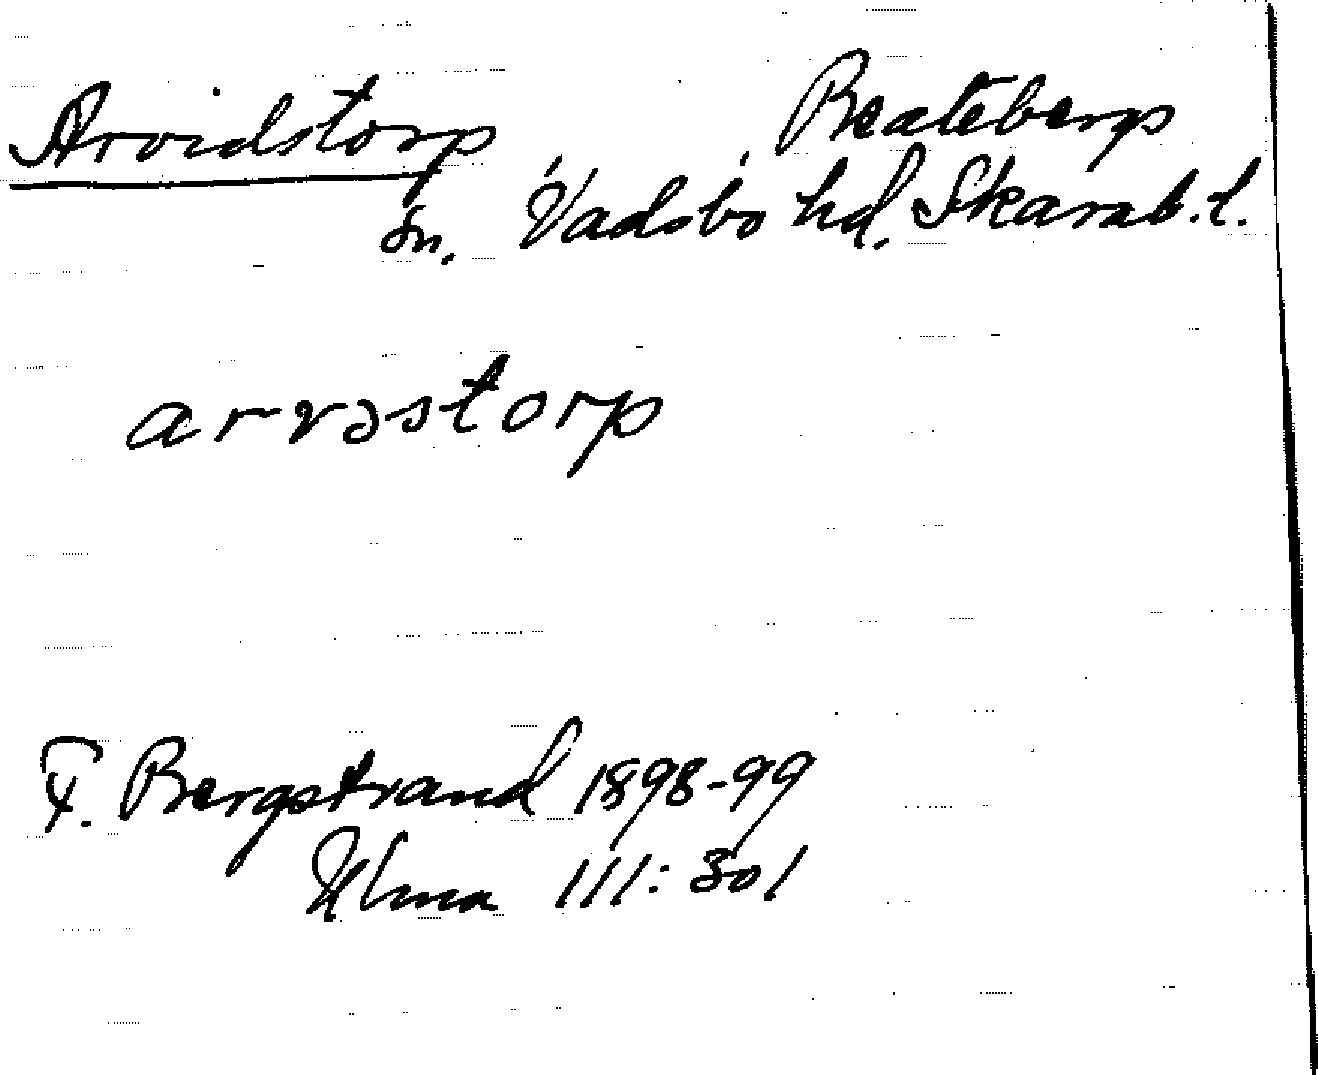 Arvidstorp Beatebergs
sn. Vadsbo hd. Skarab.l.
arvəstorp
F. Bergstrand 1898-99
Ulma 111:301